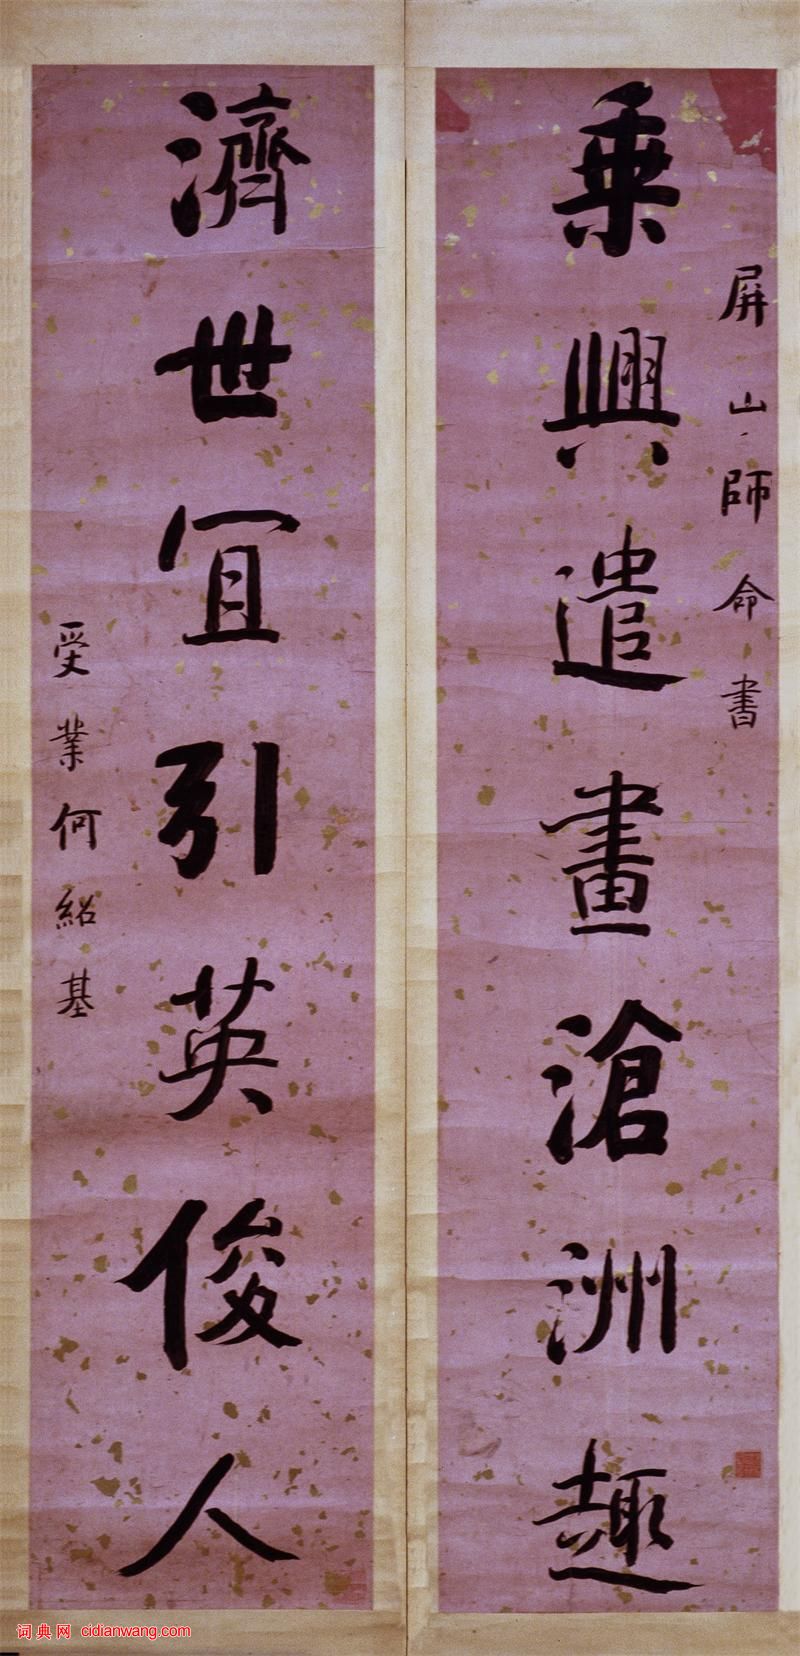 屏山師命書
乘興遣畫滄洲趣
濟世宜引英俊人
受業何紹基
词典网 cidianwang.com